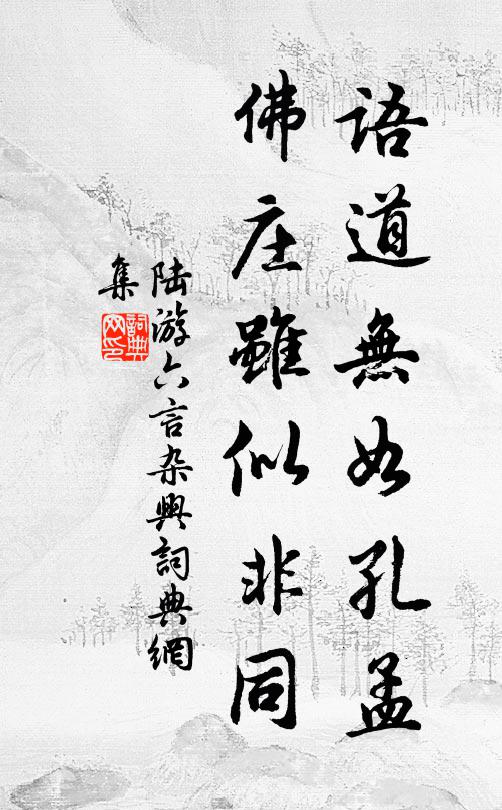 語道無如孔孟
佛庄雖似非同
陆游六言杂興詞典網
集
詞典
网印